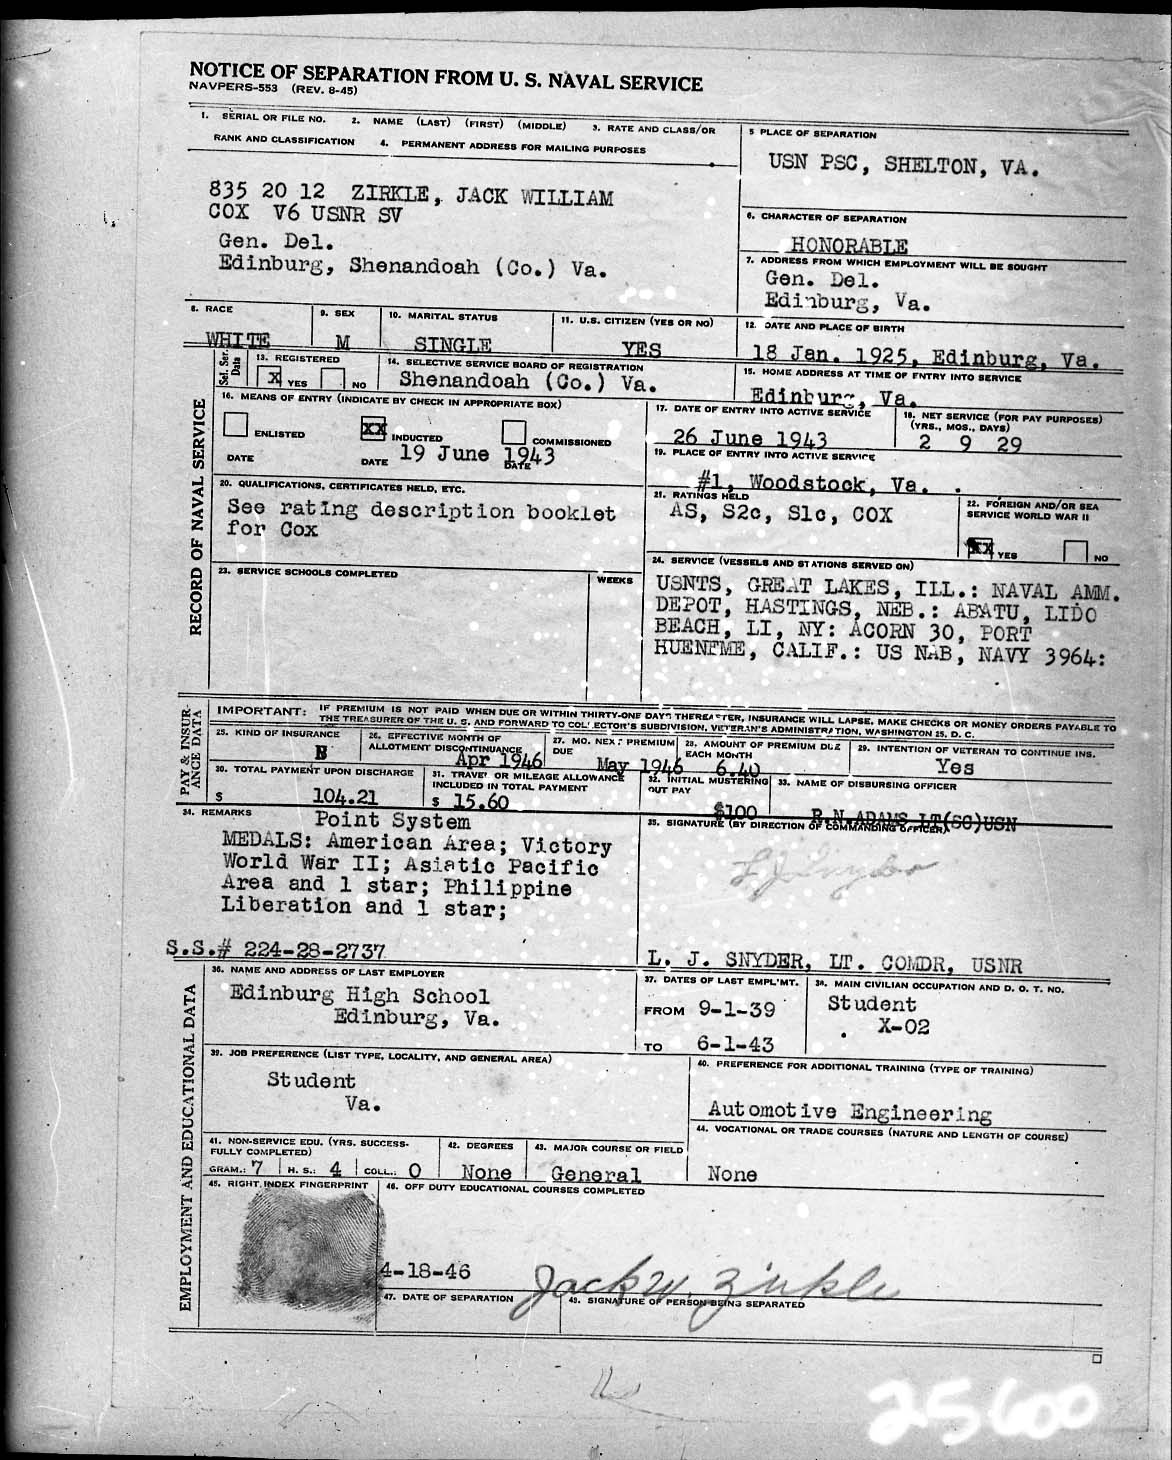 NOTICE OF SEPARATION FROM U. S. NAVAL SERVICE
NAVPERS-553 (REV. 8-45)
1. SERIAL OR FILE NO. 2. NAME (LAST) (FIRST) (MIDDLE) 3. RATE AND CLASS/OR
RANK AND CLASSIFICATION 4. PERMANENT ADDRESS FOR MAILING PURPOSES
835 20 12 ZIRKLE, JACK WILLIAM
COX V6 USNR SV
Gen. Del.
Edinburg, Shenandoah (Co.) Va.
5 PLACE OF SEPARATION
USN PSC, SHELTON, VA.
6. CHARACTER OF SEPARATION
HONORABLE
7. ADDRESS FROM WHICH EMPLOYMENT WILL BE SOUGHT
Gen. Del.
Edinburg, Va.
8. RACE
WHITE
9. SEX
M
10. MARITAL STATUS
SINGLE
11. U.S. CITIZEN (YES OR NO)
YES
12. DATE AND PLACE OF BIRTH
18 Jan. 1925, Edinburg, Va.
Sel. Ser.
Data
13. REGISTERED
X YES NO
14. SELECTIVE SERVICE BOARD OF REGISTRATION
Shenandoah (Co.) Va.
15. HOME ADDRESS AT TIME OF ENTRY INTO SERVICE
Edinburg, Va.
RECORD OF NAVAL SERVICE
16. MEANS OF ENTRY (INDICATE BY CHECK IN APPROPRIATE BOX)
ENLISTED XX INDUCTED COMMISSIONED
DATE DATE 19 June 1943 DATE
17. DATE OF ENTRY INTO ACTIVE SERVICE
26 June 1943
18. NET SERVICE (FOR PAY PURPOSES)
(YRS., MOS., DAYS)
2 9 29
19. PLACE OF ENTRY INTO ACTIVE SERVICE
#1, Woodstock, Va.
20. QUALIFICATIONS, CERTIFICATES HELD, ETC.
See rating description booklet
for Cox
21. RATINGS HELD
AS, S2c, S1c, COX
22. FOREIGN AND/OR SEA
SERVICE WORLD WAR II
XX YES NO
23. SERVICE SCHOOLS COMPLETED WEEKS
24. SERVICE (VESSELS AND STATIONS SERVED ON)
USNTS, GREAT LAKES, ILL.: NAVAL AMM.
DEPOT, HASTINGS, NEB.: ABATU, LIDO
BEACH, LI, NY: ACORN 30, PORT
HUENEME, CALIF.: US NAB, NAVY 3964:
PAY & INSUR-
ANCE DATA
IMPORTANT: IF PREMIUM IS NOT PAID WHEN DUE OR WITHIN THIRTY-ONE DAYS THEREAFTER, INSURANCE WILL LAPSE. MAKE CHECKS OR MONEY ORDERS PAYABLE TO
THE TREASURER OF THE U. S. AND FORWARD TO COLLECTOR'S SUBDIVISION, VETERAN'S ADMINISTRATION, WASHINGTON 25, D. C.
25. KIND OF INSURANCE
B
26. EFFECTIVE MONTH OF
ALLOTMENT DISCONTINUANCE
Apr 1946
27. MO. NEXT PREMIUM
DUE
May 1946
28. AMOUNT OF PREMIUM DUE
EACH MONTH
6.40
29. INTENTION OF VETERAN TO CONTINUE INS.
Yes
30. TOTAL PAYMENT UPON DISCHARGE
$ 104.21
31. TRAVEL OR MILEAGE ALLOWANCE
INCLUDED IN TOTAL PAYMENT
$ 15.60
32. INITIAL MUSTERING
OUT PAY
$100
33. NAME OF DISBURSING OFFICER
R.N.ADAMS LT(SC)USN
34. REMARKS
Point System
MEDALS: American Area; Victory
World War II; Asiatic Pacific
Area and 1 star; Philippine
Liberation and 1 star;
S.S.# 224-28-2737
35. SIGNATURE (BY DIRECTION OF COMMANDING OFFICER)
L J Snyder
L. J. SNYDER, LT. COMDR, USNR
EMPLOYMENT AND EDUCATIONAL DATA
36. NAME AND ADDRESS OF LAST EMPLOYER
Edinburg High School
Edinburg, Va.
37. DATES OF LAST EMPL'MT.
FROM 9-1-39
TO 6-1-43
38. MAIN CIVILIAN OCCUPATION AND D. O. T. NO.
Student
X-02
39. JOB PREFERENCE (LIST TYPE, LOCALITY, AND GENERAL AREA)
Student
Va.
40. PREFERENCE FOR ADDITIONAL TRAINING (TYPE OF TRAINING)
Automotive Engineering
41. NON-SERVICE EDU. (YRS. SUCCESS-
FULLY COMPLETED)
GRAM.: 7 H. S.: 4 COLL.: 0
42. DEGREES
None
43. MAJOR COURSE OR FIELD
General
44. VOCATIONAL OR TRADE COURSES (NATURE AND LENGTH OF COURSE)
None
45. RIGHT INDEX FINGERPRINT
46. OFF DUTY EDUCATIONAL COURSES COMPLETED
4-18-46
47. DATE OF SEPARATION
Jack W. Zirkle
48. SIGNATURE OF PERSON BEING SEPARATED
25600